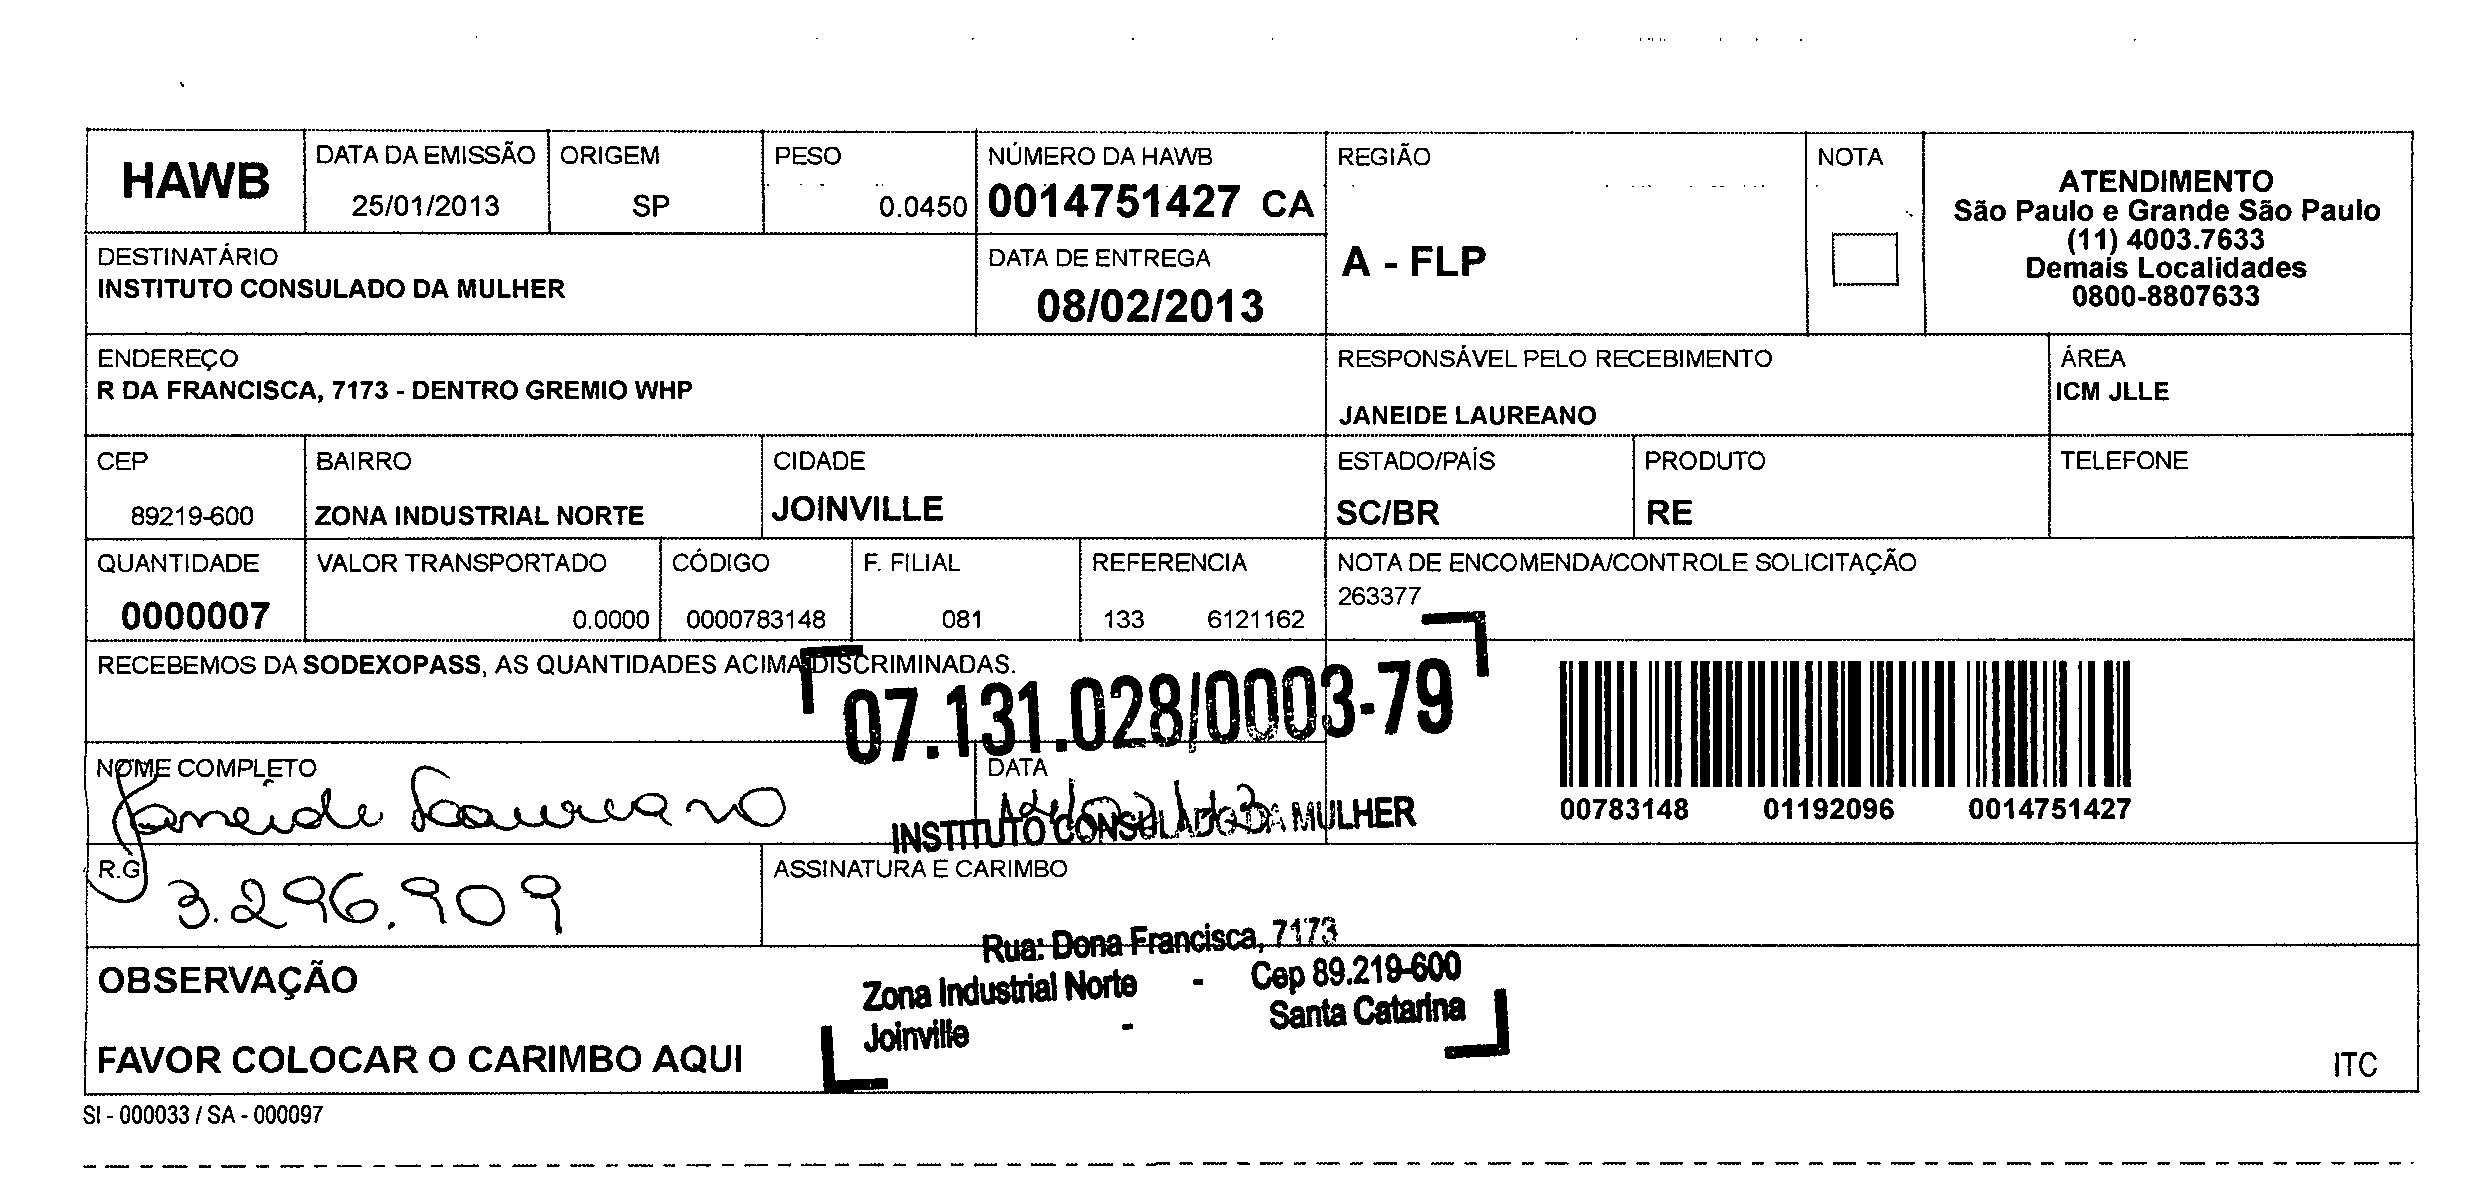 HAWB
DATA DA EMISSÃO
25/01/2013
ORIGEM
SP
PESO
0.0450
NÚMERO DA HAWB
0014751427 CA
REGIÃO
A - FLP
NOTA
ATENDIMENTO
São Paulo e Grande São Paulo
(11) 4003.7633
Demais Localidades
0800-8807633
DESTINATÁRIO
INSTITUTO CONSULADO DA MULHER
DATA DE ENTREGA
08/02/2013
ENDEREÇO
R DA FRANCISCA, 7173 - DENTRO GREMIO WHP
RESPONSÁVEL PELO RECEBIMENTO
JANEIDE LAUREANO
ÁREA
ICM JLLE
CEP
89219-600
BAIRRO
ZONA INDUSTRIAL NORTE
CIDADE
JOINVILLE
ESTADO/PAÍS
SC/BR
PRODUTO
RE
TELEFONE
QUANTIDADE
0000007
VALOR TRANSPORTADO
0.0000
CÓDIGO
0000783148
F. FILIAL
081
REFERENCIA
133 6121162
NOTA DE ENCOMENDA/CONTROLE SOLICITAÇÃO
263377
RECEBEMOS DA SODEXOPASS, AS QUANTIDADES ACIMA DISCRIMINADAS.
07.131.028/0003-79
NOME COMPLETO
Janeide Laureano
DATA
INSTITUTO CONSULADO DA MULHER
00783148 01192096 0014751427
R.G
3.296.909
ASSINATURA E CARIMBO
Rua: Dona Francisca, 7173
Zona Industrial Norte - Cep 89.219-600
Joinville - Santa Catarina
OBSERVAÇÃO
FAVOR COLOCAR O CARIMBO AQUI
ITC
SI - 000033 / SA - 000097